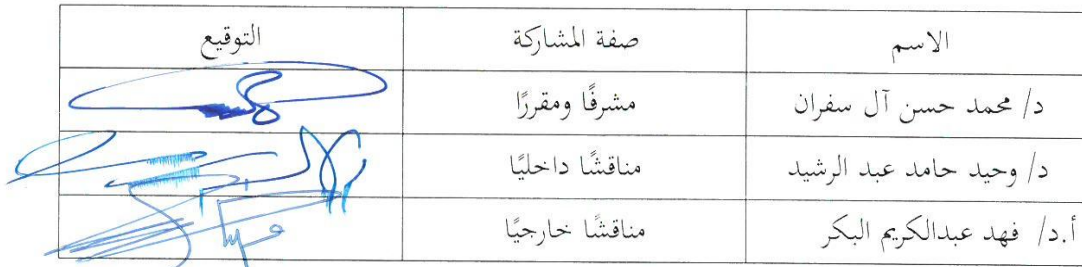 الاسم صفة المشاركة التوقيع
د/ محمد حسن آل سفران مشرفًا ومقررًا
د/ وحيد حامد عبد الرشيد مناقشًا داخليًا
أ.د/ فهد عبدالكريم البكر مناقشًا خارجيًا